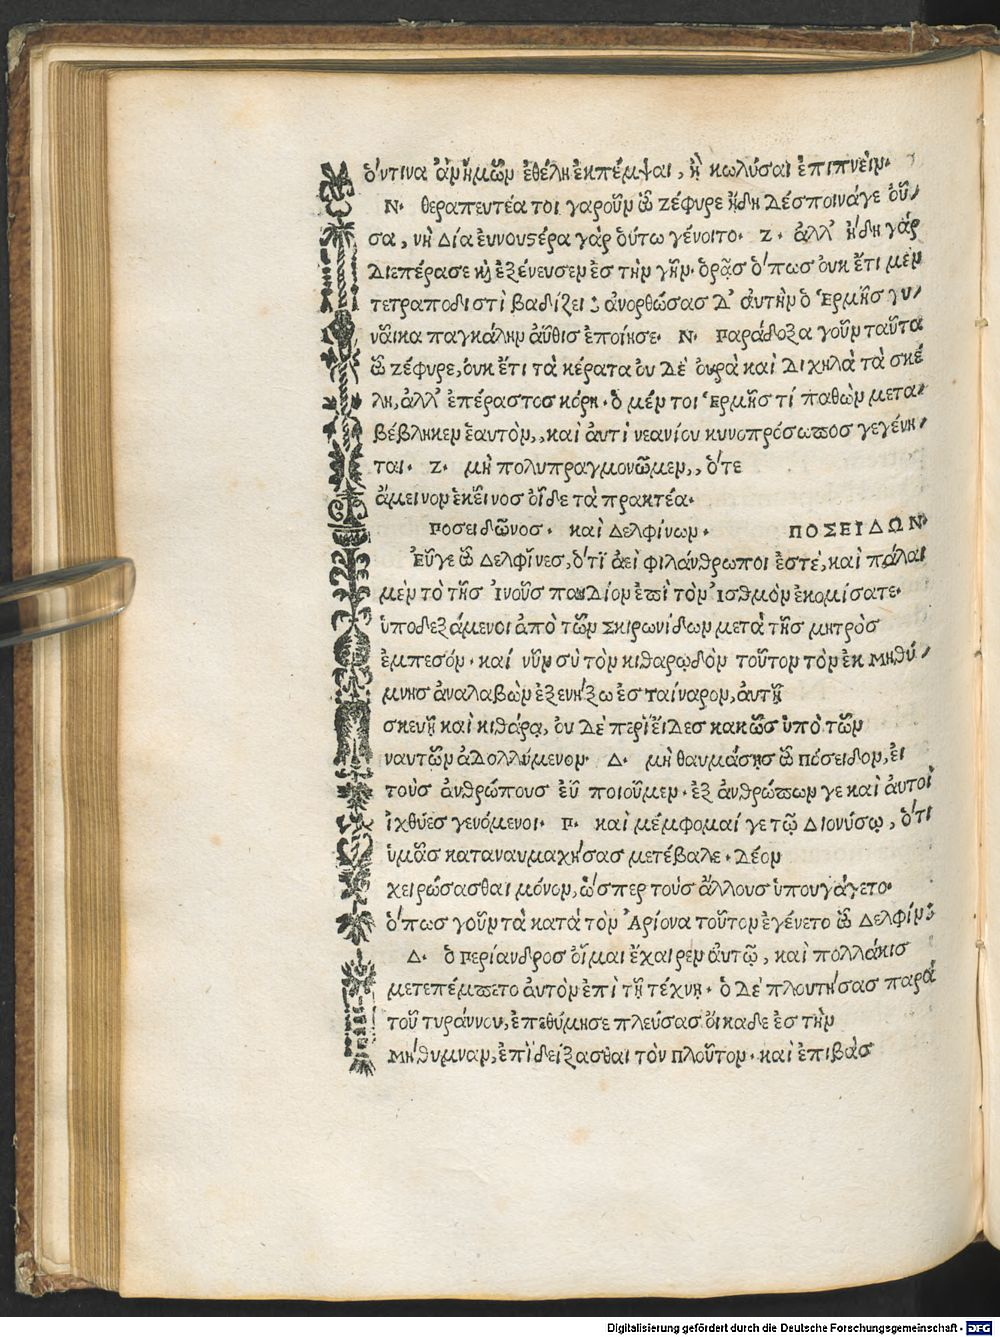 ὅντινα ἂν ἡμῶν ἐθέλη ἐκπέμψαι, ἢ κωλύσαι ἐπιπνεῖν·
Ν· θεραπευτέα τοι γαροῦν ὦ ζέφυρε ἤδη Δέσποινάγε οὖ/
σα, νὴ Δία ἐυνουστέρα γὰρ ὅυτω γένοιτο· Ζ· ἀλλ' ἤδη γὰρ
Διεπέρασε καὶ ἐξένευσεν ἐς τὴν γῆν· ὁρᾷς ὅπως ὀυκ ἔτι μὲν
τετραποδιστὶ βαδίζει; ἀνορθώσας Δ' ἀυτὴν ὁ Ἑρμῆς γυ/
ναῖκα παγκάλην αὖθις ἐποίησε· Ν· Παράδοξα γοῦν ταῦτα
ὦ ζέφυρε, ὀυκ ἔτι τὰ κέρατα ὀυ Δὲ ὀυρὰ καὶ Διχηλὰ τὰ σκέ
λη, ἀλλ' ἐπέραστος κόρη· ὁ μέντοι Ἑρμῆς τί παθὼν μετα/
βέβληκεν ἑαυτὸν,, καὶ ἀντὶ νεανίου κυνοπρόσωπος γεγένη/
ται· Ζ· μὴ πολυπραγμονῶμεν,, ὅτε
ἄμεινον ἐκεῖνος οἶδε τὰ πρακτέα·
Ποσειδῶνος· καὶ Δελφίνων· ΠΟΣΕΙΔΩΝ·
Εὖγε ὦ Δελφῖνες, ὅτι ἀεὶ φιλάνθρωποι ἐστέ, καὶ πάλαι
μὲν τὸ τῆς Ἰνοῦς παιΔίον ἐπὶ τὸν Ἰσθμὸν ἐκομίσατε·
ὑποδεξάμενοι ἀπὸ τῶν Σκιρωνίδων μετὰ τῆς μητρὸς
ἐμπεσόν· καί νῦν σὺ τὸν κιθαρῳδὸν τοῦτον τὸν ἐκ Μηθύ/
μνης ἀναλαβὼν ἐξενήξω ἐς ταίναρον, ἀυτῇ
σκευῇ καὶ κιθάρᾳ, ὀυ Δὲ περιεῖδες κακῶς ὑπὸ τῶν
ναυτῶν ἀπολλύμενον· Δ· μὴ θαυμάσῃς ὦ Πόσειδον, εἰ
τοὺς ἀνθρώπους εὖ ποιοῦμεν· ἐξ ἀνθρώπων γε καὶ ἀυτοὶ
ἰχθύες γενόμενοι· Π· καὶ μέμφομαί γε τῷ Διονύσῳ, ὅτι
ὑμᾶς καταναυμαχήσας μετέβαλε· Δέον
χειρώσασθαι μόνον, ὥσπερ τοὺς ἄλλους ὑπουγάγετο·
ὅπως γοῦν τὰ κατὰ τὸν Ἀρίονα τοῦτον ἐγένετο ὦ Δελφίν;
Δ· ὁ Περίανδρος οἶμαι ἔχαιρεν ἀυτῷ, καὶ πολλάκις
μετεπέμπετο ἀυτὸν ἐπὶ τῇ τέχνῃ· ὁ Δὲ πλουτήσας παρὰ
τοῦ τυράννου, ἐπεθύμησε πλεύσας οἴκαδε ἐς τὴν
Μήθυμναν, ἐπιδείξασθαι τὸν πλοῦτον· καὶ ἐπιβὰς
Digitalisierung gefördert durch die Deutsche Forschungsgemeinschaft - DFG